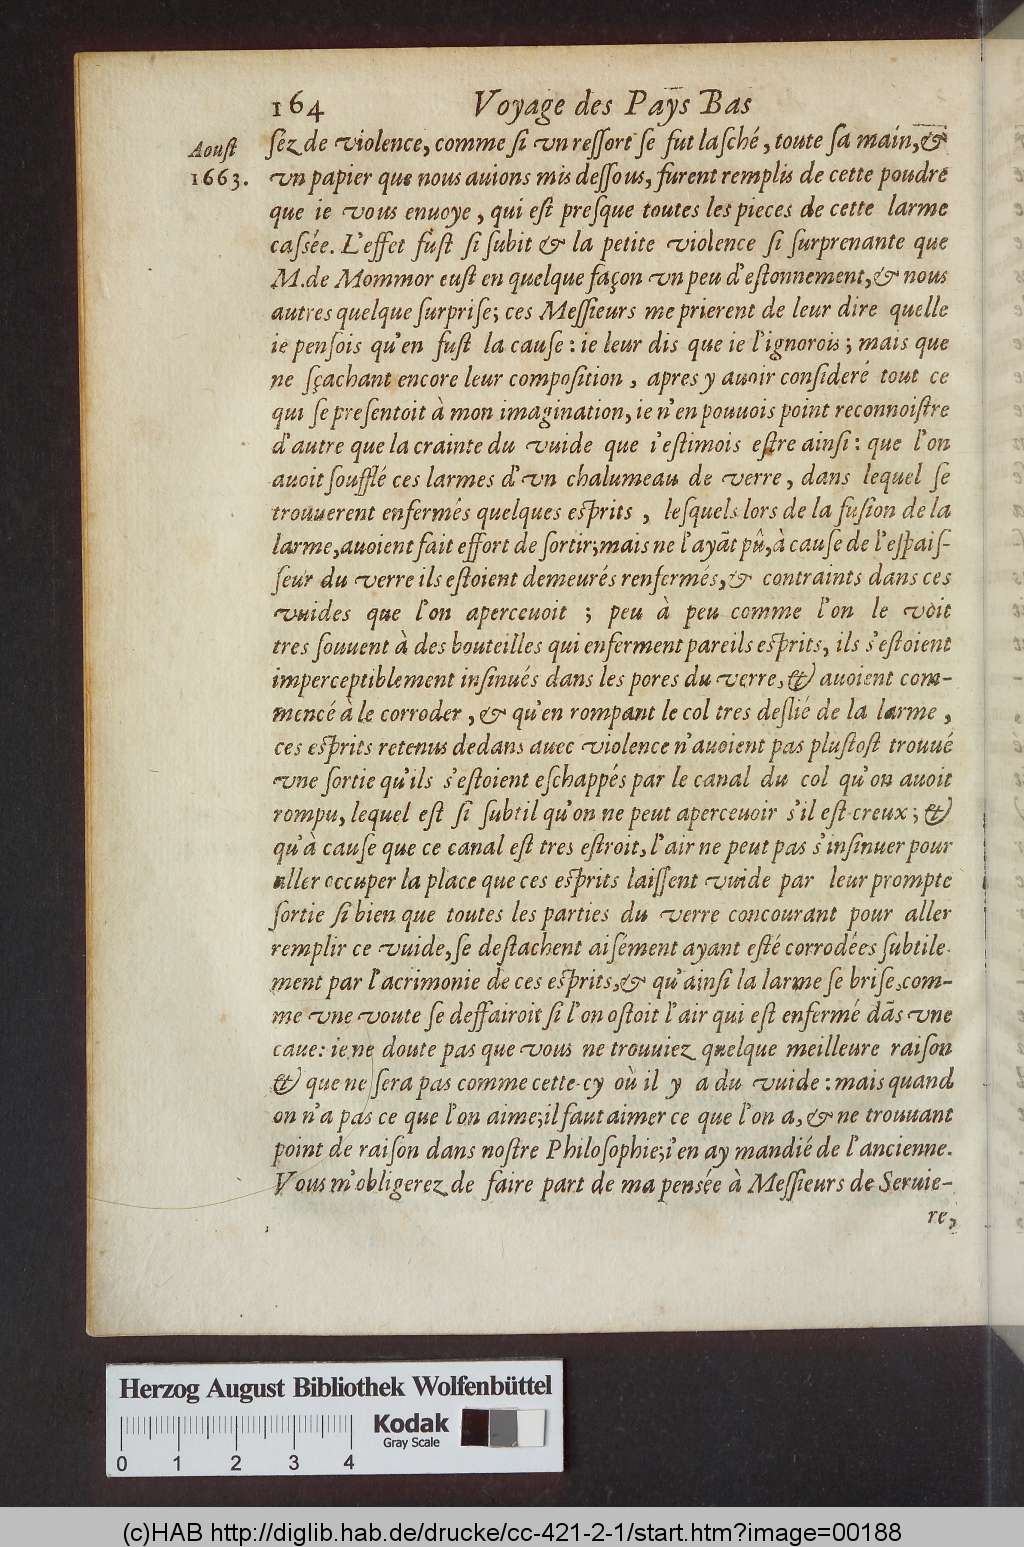 164 Voyage des Paÿs Bas
Aoust
1663.
sez de violence, comme si vn ressort se fut lasché, toute sa main, &
vn papier que nous auions mis dessous, furent remplis de cette poudre
que ie vous enuoye, qui est presque toutes les pieces de cette larme
cassée. L'effet fust si subit & la petite violence si surprenante que
M. de Mommor eust en quelque façon vn peu d'estonnement, & nous
autres quelque surprise; ces Messieurs me prierent de leur dire quelle
ie pensois qu'en fust la cause : ie leur dis que ie l'ignorois ; mais que
ne sçachant encore leur composition, apres y auoir consideré tout ce
qui se presentoit à mon imagination, ie n'en pouuois point reconnoistre
d'autre que la crainte du vuide que i'estimois estre ainsi : que l'on
auoit soufflé ces larmes d'vn chalumeau de verre, dans lequel se
trouuerent enfermés quelques esprits, lesquels lors de la fusion de la
larme, auoient fait effort de sortir; mais ne l'ayāt pû, à cause de l'espais-
seur du verre ils estoient demeurés renfermés, & contraints dans ces
vuides que l'on aperceuoit ; peu à peu comme l'on le voit
tres souuent à des bouteilles qui enferment pareils esprits, ils s'estoient
imperceptiblement insinués dans les pores du verre, & auoient com-
mencé à le corroder, & qu'en rompant le col tres deslié de la larme,
ces esprits retenus dedans auec violence n'auoient pas plustost trouué
vne sortie qu'ils s'estoient eschappés par le canal du col qu'on auoit
rompu, lequel est si subtil qu'on ne peut aperceuoir s'il est creux ; &
qu'à cause que ce canal est tres estroit, l'air ne peut pas s'insinuer pour
aller occuper la place que ces esprits laissent vuide par leur prompte
sortie si bien que toutes les parties du verre concourant pour aller
remplir ce vuide, se destachent aisément ayant esté corrodées subtile-
ment par l'acrimonie de ces esprits, & qu'ainsi la larme se brise, com-
me vne voute se deffairoit si l'on ostoit l'air qui est enfermé dās vne
caue : ie ne doute pas que vous ne trouuiez quelque meilleure raison
& que ne sera pas comme cette-cy où il y a du vuide : mais quand
on n'a pas ce que l'on aime; il faut aimer ce que l'on a, & ne trouuant
point de raison dans nostre Philosophie; i'en ay mandié de l'ancienne.
Vous m'obligerez de faire part de ma pensée à Messieurs de Seruie-
re,
Herzog August Bibliothek Wolfenbüttel
Kodak
Gray Scale
0 1 2 3 4
(c)HAB http://diglib.hab.de/drucke/cc-421-2-1/start.htm?image=00188